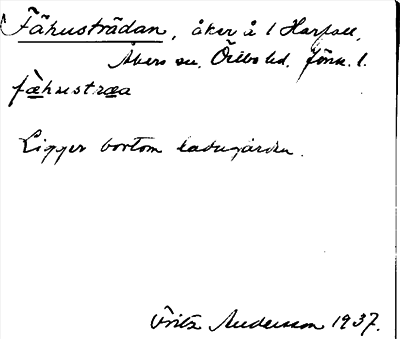 Fähusträdan, åker å 1 Harfall,
Åkers sn. Öilbo hd. förn. l.
fæ̀hustræa
Ligger bortom ladugården.
Fritz Andersson 1937.